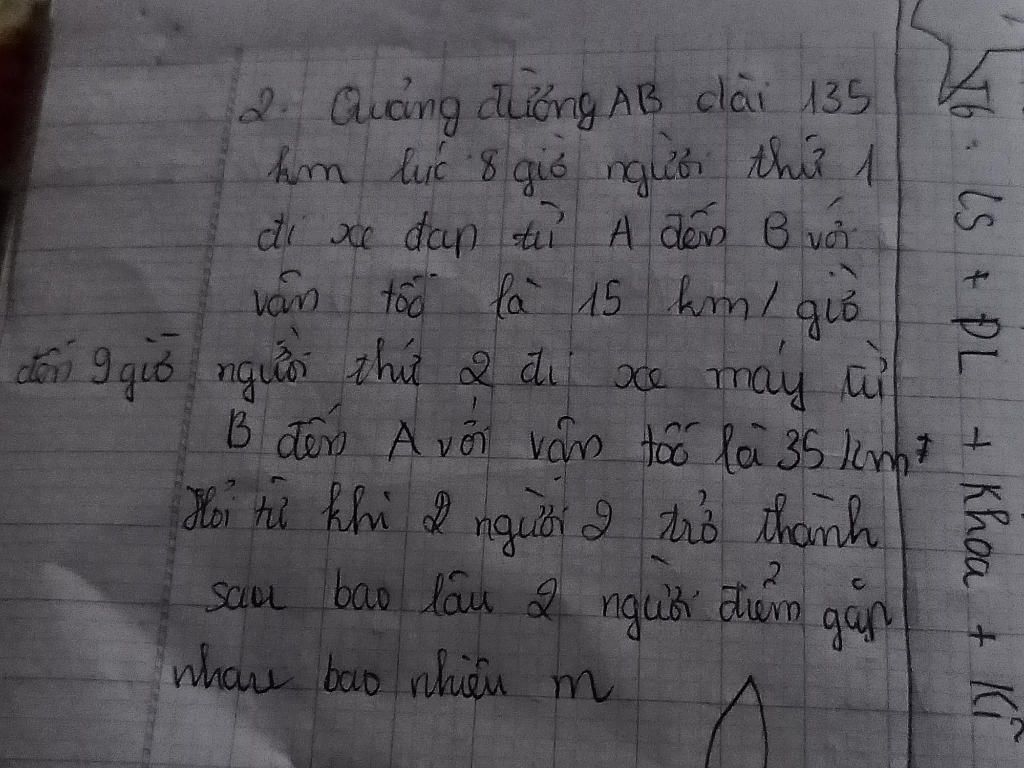 2. Quảng đường AB dài 135
km lúc 8 giờ người thứ 1
đi xe đạp từ A đến B với
vân tốc là 15 km/giờ
đến 9giờ người thứ 2 đi xe máy từ
B đến A với vân tốc là 35 km
Hỏi từ khi 2 người 2 trở thành
sau bao lâu 2 người điểm gặp
nhau bao nhiêu m
Tb. LS + ĐL + Khoa + Ki